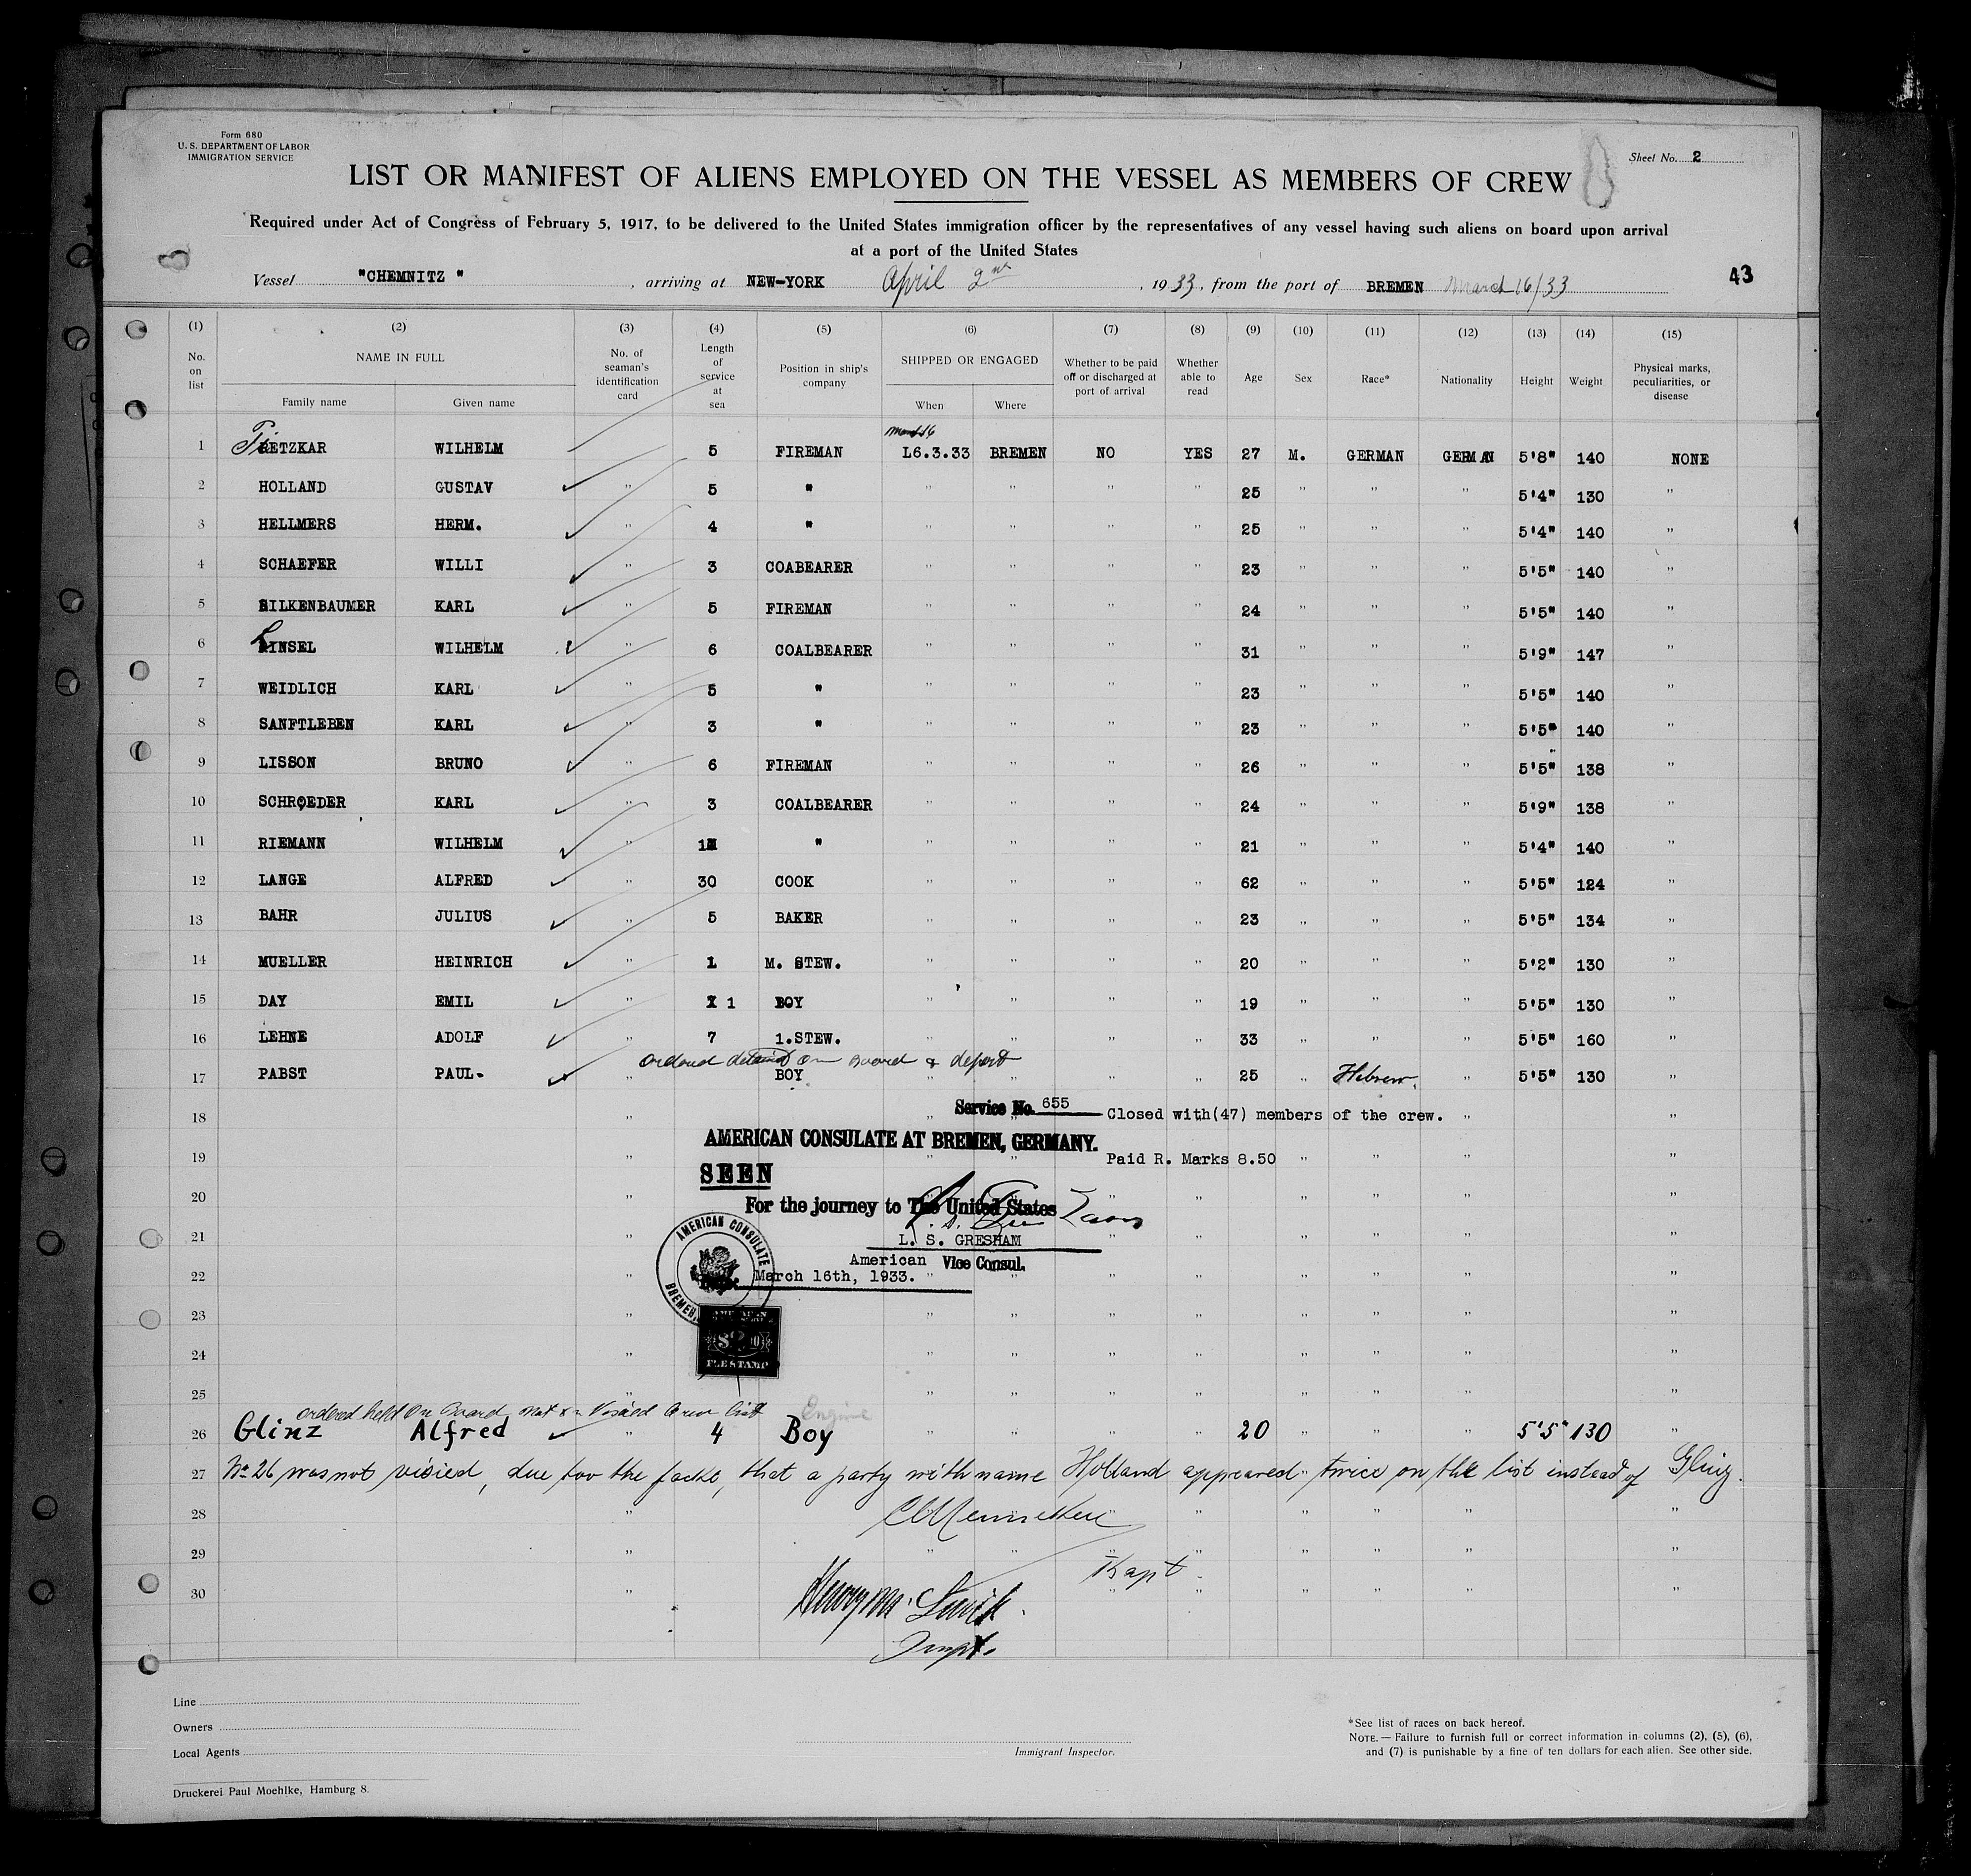 Form 680
U. S. DEPARTMENT OF LABOR
IMMIGRATION SERVICE
Sheet No. 2
LIST OR MANIFEST OF ALIENS EMPLOYED ON THE VESSEL AS MEMBERS OF CREW
Required under Act of Congress of February 5, 1917, to be delivered to the United States immigration officer by the representatives of any vessel having such aliens on board upon arrival
at a port of the United States
Vessel "CHEMNITZ", arriving at NEW-YORK April 2nd, 1933, from the port of BREMEN March 16/33 43
(1) (2) (3) (4) (5) (6) (7) (8) (9) (10) (11) (12) (13) (14) (15)
No. on list NAME IN FULL Family name Given name No. of seaman's identification card Length of service at sea Position in ship's company SHIPPED OR ENGAGED When Where Whether to be paid off or discharged at port of arrival Whether able to read Age Sex Race* Nationality Height Weight Physical marks, peculiarities, or disease
1 TIETZKAR WILHELM 5 FIREMAN L6.3.33 BREMEN NO YES 27 M. GERMAN GERMAN 5'8" 140 NONE
2 HOLLAND GUSTAV " 5 " " " " " 25 " " " 5'4" 130 "
3 HELLMERS HERM. " 4 " " " " " 25 " " " 5'4" 140 "
4 SCHAEFER WILLI " 3 COABEARER " " " " 23 " " " 5'5" 140 "
5 SILKENBAUMER KARL " 5 FIREMAN " " " " 24 " " " 5'5" 140 "
6 LINSEL WILHELM " 6 COALBEARER " " " " 31 " " " 5'9" 147 "
7 WEIDLICH KARL " 5 " " " " " 23 " " " 5'5" 140 "
8 SANFTLEBEN KARL " 3 " " " " " 23 " " " 5'5" 140 "
9 LISSON BRUNO " 6 FIREMAN " " " " 26 " " " 5'5" 138 "
10 SCHROEDER KARL " 3 COALBEARER " " " " 24 " " " 5'9" 138 "
11 RIEMANN WILHELM " 1 " " " " " 21 " " " 5'4" 140 "
12 LANGE ALFRED " 30 COOK " " " " 62 " " " 5'5" 124 "
13 BAHR JULIUS " 5 BAKER " " " " 23 " " " 5'5" 134 "
14 MUELLER HEINRICH " 1 M. STEW. " " " " 20 " " " 5'2" 130 "
15 DAY EMIL " 1 BOY " " " " 19 " " " 5'5" 130 "
16 LEHNE ADOLF " 7 1.STEW. " " " " 33 " " " 5'5" 160 "
ordered detained on board & deport
17 PABST PAUL- " BOY " " " " 25 " Hebrew. " 5'5" 130 "
18 Service No. 655 Closed with(47) members of the crew.
AMERICAN CONSULATE AT BREMEN, GERMANY.
19 Paid R. Marks 8.50
SEEN
20 For the journey to The United States
21 L. S. GRESHAM
American Vice Consul.
22 March 16th, 1933.
AMERICAN CONSULATE
BREMEN
23
24 FEE STAMP
25
ordered held on board not on visaed crew list Engine
26 Glinz Alfred " 4 Boy " " " " 20 " " " 5'5" 130 "
27 No 26 was not visied, due too the fackt, that a party with name Holland appeared twice on the list instead of Glinz.
28
29 Kapt.
30
Insp't.
Line
Owners
Local Agents
Immigrant Inspector.
*See list of races on back hereof.
NOTE.—Failure to furnish full or correct information in columns (2), (5), (6),
and (7) is punishable by a fine of ten dollars for each alien. See other side.
Druckerei Paul Moehlke, Hamburg 8.